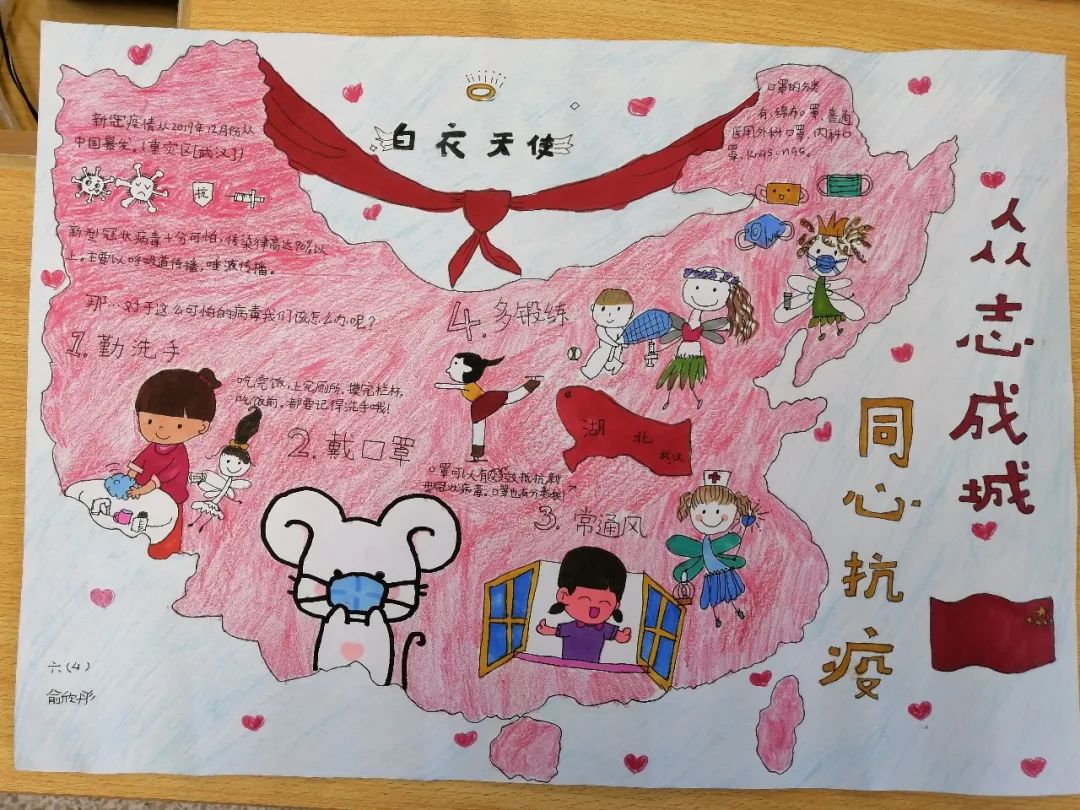 白衣天使
新冠疫情从2019年12月份从
中国暴先。(重灾区[武汉])
抗
新型冠状病毒十分可怕,传染律高达90%以
上。主要以呼吸道传播、唾液传播。
那…对于这么可怕的病毒我们该怎么办呢?
1.勤洗手
吃完饭,上完厕所,摸完栏杆,
吃饭前,都要记得洗手哦!
2.戴口罩
口罩可以有效抵抗新
型冠状病毒。口罩也有分类哦!
3.常通风
4.多锻练
湖北
武汉
口罩的分类
有:绵布口罩,普通
医用外科口罩,内科口
罩,kn95、n95。
众志成城
同心抗疫
六(4)
俞欣彤